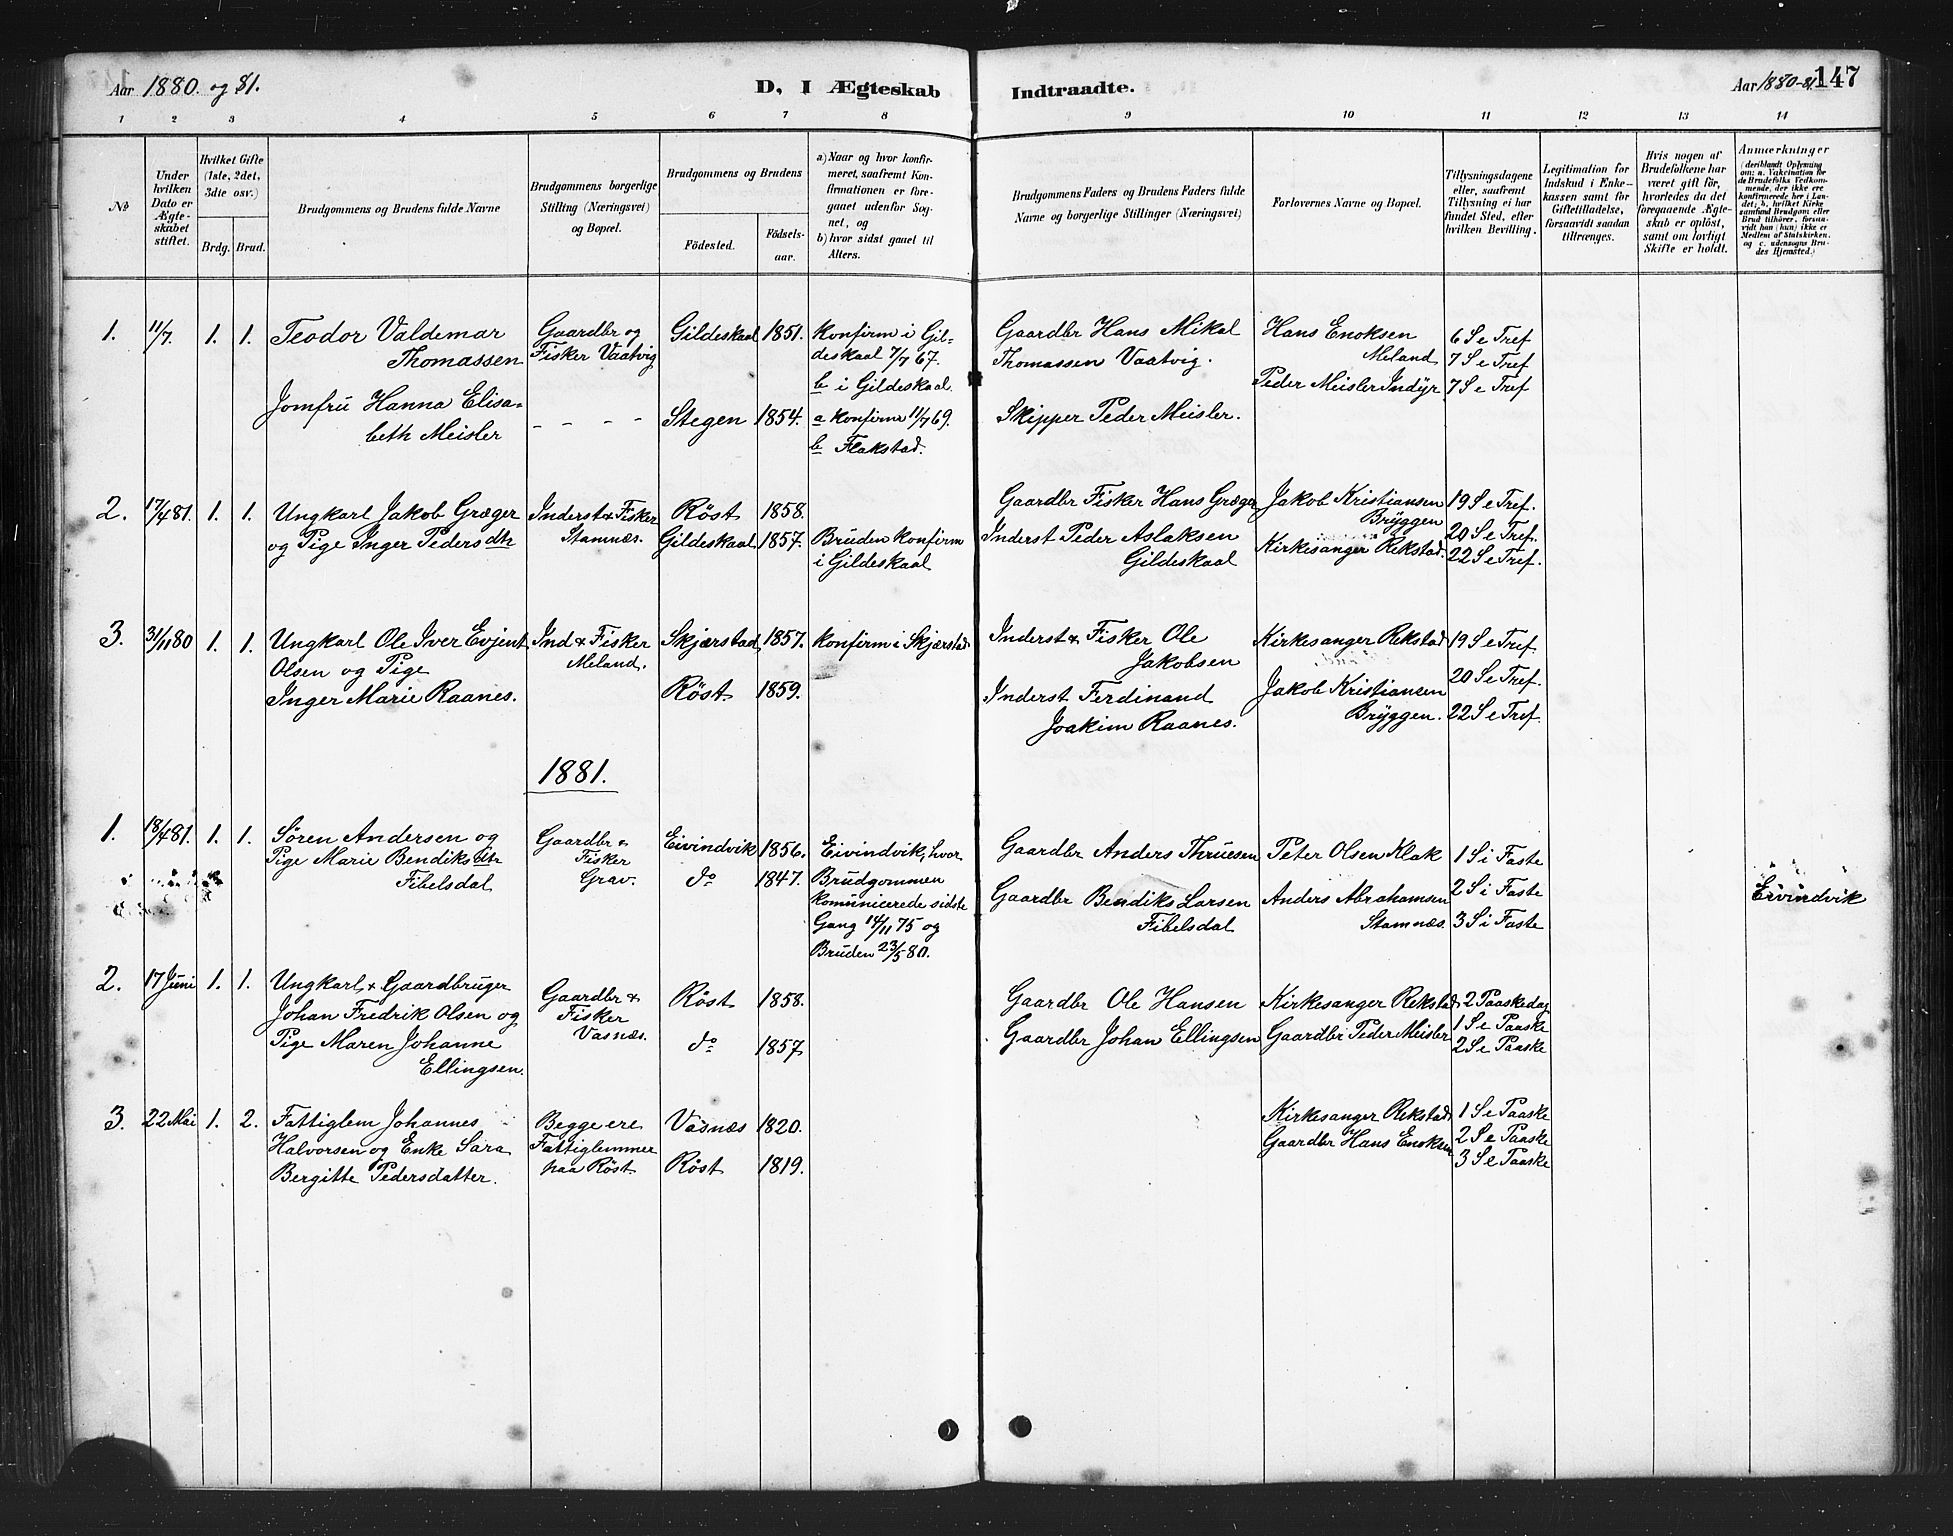 Aar 1880. og 81.
D, I Ægteskab
Indtraadte.
Aar 1880-81
147
1 2 3 4 5 6 7 8 9 10 11 12 13 14
No
Under
hvilken
Dato er
Ægte-
skabet
stiftet.
Hvilket Gifte
(1ste, 2det,
3die osv.)
Brdg. Brud.
Brudgommens og Brudens fulde Navne
Brudgommens borgerlige
Stilling (Næringsvei)
og Bopæl.
Brudgommens og Brudens
Fødested.
Fødsels-
aar.
a) Naar og hvor konfir-
meret, saafremt Kon-
firmationen er fore-
gaaet udenfor Sog-
net, og
b) hvor sidst gaaet til
Alters.
Brudgommens Faders og Brudens Faders fulde
Navne og borgerlige Stillinger (Næringsvei)
Forlovernes Navne og Bopæl.
Tillysningsdagene
eller, saafremt
Tillysning ei har
fundet Sted, efter
hvilken Bevilling.
Legitimation for
Indskud i Enke-
kassen samt for
Giftetilladelse,
forsaavidt saadan
tiltrænges.
Hvis nogen af
Brudefolkene har
været gift før,
hvorledes da det
foregaaende Ægte-
skab er opløst,
samt om lovligt
Skifte er holdt.
Anmærkninger
(deriblandt Oplysning
om: a. Vakcination for
de Brudefolks Vedkom-
mende, der ikke ere
konfirmerede her i Lan-
det; b. hvilket Kirke
samfund Brudgom eller
Brud tilhører, forsaa-
vidt han (hun) ikke er
Medlem af Statskirken.
og c. udensogns Bru-
des Hjemsted.)
1. 11/7. 1. 1. Teodor Valdemar
Thomassen
Gaardbr og
Fisker Vaatvig
Gildeskaal 1851.
Konfirm i Gil-
deskaal 7/7 67.
b i Gildeskaal.
Gaardbr Hans Mikal
Thomassen Vaatvig.
Hans Enoksen
Meland
Peder Meisler Indyr
6 S e Tref
7 S e Tref
7 S e Tref
Jomfru Hanna Elisa-
beth Meisler
- - - -
Stegen 1854.
a konfirm 11/7 69.
b Flakstad.
Skipper Peder Meisler.
2. 17/4 81. 1. 1. Ungkarl Jakob Græger
og Pige Inger Pedersdtr
Inderst & Fisker
Stamnæs.
Röst 1858.
Gildeskaal 1857.
Bruden konfirm
i Gildeskaal
Gaardbr Fisker Hans Græger
Inderst Peder Aslaksen
Gildeskaal
Jakob Kristiansen
Bryggen
Kirkesanger Rekstad.
19 S e Tref.
20 S e Tref.
22 S e Tref.
3. 31/11 80 1. 1. Ungkarl Ole Iver Evjent
Olsen og Pige
Inger Marie Raanes.
Ind & Fisker
Meland.
Skjærstad 1857.
Röst 1859.
Konfirm i Skjærstad
Inderst & Fisker Ole
Jakobsen
Inderst Ferdinand
Joakim Raanes.
Kirkesanger Rekstad
Jakob Kristiansen
Bryggen.
19 S e Tref.
20 S e Tref.
22 S e Tref.
1881.
1. 18/4 81. 1. 1. Sören Andersen og
Pige Marie Bendiksdtr
Fibelsdal
Gaardbr &
Fisker
Grav.
Eivindvik 1856.
do 1847.
Eivindvik, hvor
Brudgommen
komunicerede sidste
Gang 14/11 75 og
Bruden 23/5 80.
Gaardbr Anders Thruesen
Gaardbr Bendiks Larsen
Fibelsdal
Peter Olsen Klak
Anders Abrahamsen
Stamnæs.
1 S i Faste
2 S i Faste
3 S i Faste
Eivindvik
2. 17 Juni 1. 1. Ungkarl & Gaardbruger
Johan Fredrik Olsen og
Pige Maren Johanne
Ellingsen.
Gaardbr &
Fisker
Vasnæs.
Röst 1858.
do 1857
Gaardbr Ole Hansen
Gaardbr Johan Ellingsen
Kirkesanger Rekstad
Gaardbr Peder Meisler
2 Paaskedag
1 S e Paaske
2 S e Paaske
3. 22 Mai 1. 2. Fattiglem Johannes
Halvorsen og Enke Sara
Bergitte Pedersdatter.
Begge ere
Fattiglemmer
paa Röst
Vasnæs 1820.
Röst 1819.
Kirkesanger Rekstad
Gaardbr Hans Enoksen
1 S e Paaske
2 S e Paaske
3 S e Paaske